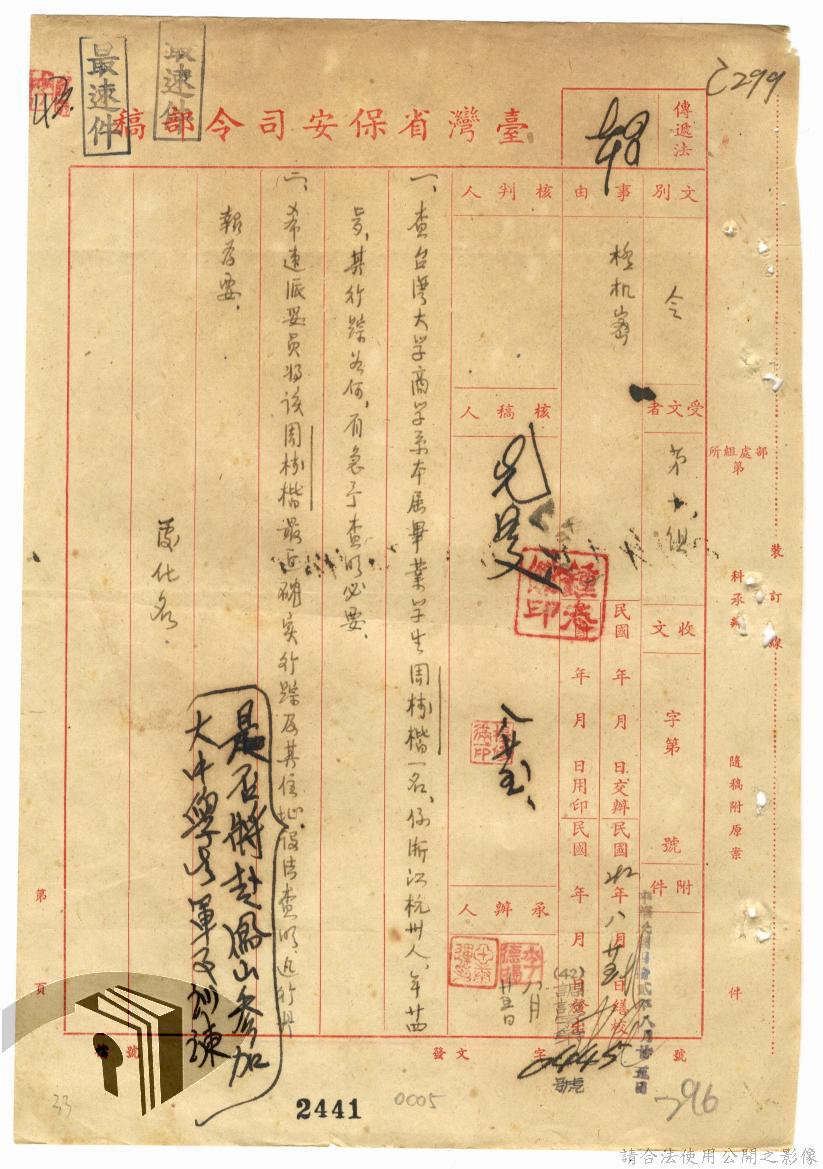 299
最速件
最速件
臺灣省保安司令部稿
傳遞法
文別
事由
核判人
令
受文者
第 組
核稿人
收文
字第
號
附件
民國 年 月 日交辦
民國 年 月 日用印
民國 年八月 日繕校
民國 年 月 日發出
承辦人
八月廿五日
一、查台灣大学商学系本屆畢業学生周 楷一名，係浙江杭州人，年廿四
歲，其行踪為何，有急予查明必要。
二、希速派妥員將該周 楷最近確实行踪及其住址設法查明，迅行具
報為要。
是否將赴鳳山參加
大中學生軍文訓練
化名。
部處組所
第
科承辦
裝訂線
隨稿附原案
件
第 頁
檔號
發文 字 號
0445
2441
0005
33
296
請合法使用公開之影像